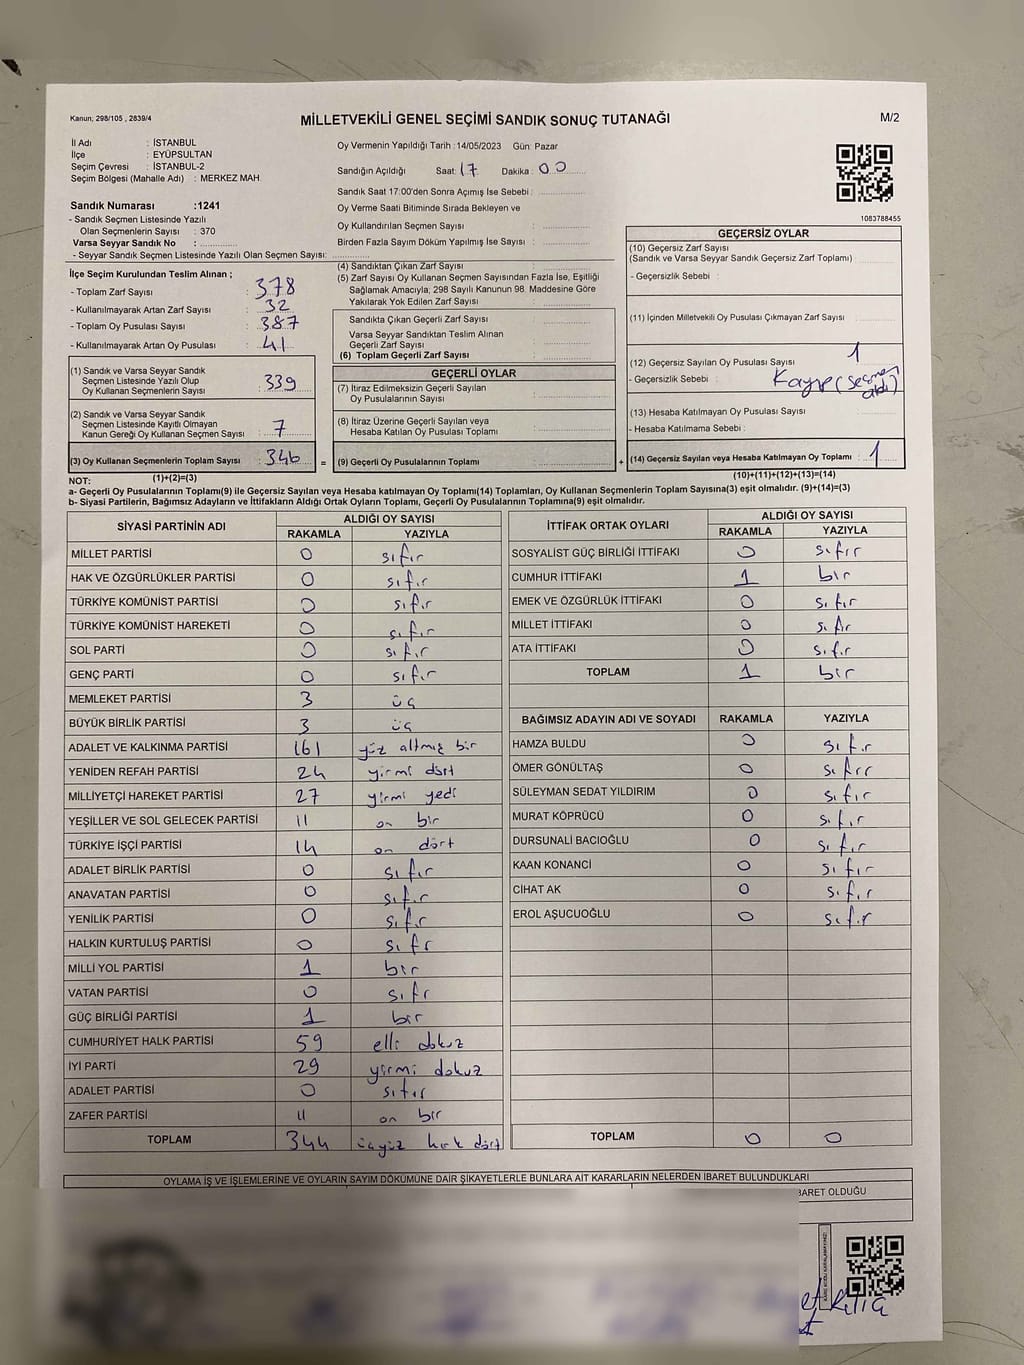 Kanun; 298/105 , 2839/4
MİLLETVEKİLİ GENEL SEÇİMİ SANDIK SONUÇ TUTANAĞI
M/2
İl Adı : İSTANBUL
İlçe : EYÜPSULTAN
Seçim Çevresi : İSTANBUL-2
Seçim Bölgesi (Mahalle Adı) : MERKEZ MAH.
Sandık Numarası :1241
- Sandık Seçmen Listesinde Yazılı
Olan Seçmenlerin Sayısı : 370
Varsa Seyyar Sandık No :
- Seyyar Sandık Seçmen Listesinde Yazılı Olan Seçmen Sayısı:
Oy Vermenin Yapıldığı Tarih : 14/05/2023 Gün: Pazar
Sandığın Açıldığı Saat: 17 Dakika : 00
Sandık Saat 17:00'den Sonra Açımış İse Sebebi :
Oy Verme Saati Bitiminde Sırada Bekleyen ve
Oy Kullandırılan Seçmen Sayısı :
Birden Fazla Sayım Döküm Yapılmış İse Sayısı :
1083788455
İlçe Seçim Kurulundan Teslim Alınan ;
- Toplam Zarf Sayısı : 378
- Kullanılmayarak Artan Zarf Sayısı : 32
- Toplam Oy Pusulası Sayısı : 387
- Kullanılmayarak Artan Oy Pusulası : 41
(1) Sandık ve Varsa Seyyar Sandık
Seçmen Listesinde Yazılı Olup
Oy Kullanan Seçmenlerin Sayısı : 339
(2) Sandık ve Varsa Seyyar Sandık
Seçmen Listesinde Kayıtlı Olmayan
Kanun Gereği Oy Kullanan Seçmen Sayısı : 7
(3) Oy Kullanan Seçmenlerin Toplam Sayısı : 346
(4) Sandıktan Çıkan Zarf Sayısı :
(5) Zarf Sayısı Oy Kullanan Seçmen Sayısından Fazla İse, Eşitliği
Sağlamak Amacıyla; 298 Sayılı Kanunun 98. Maddesine Göre
Yakılarak Yok Edilen Zarf Sayısı :
Sandıkta Çıkan Geçerli Zarf Sayısı :
Varsa Seyyar Sandıktan Teslim Alınan
Geçerli Zarf Sayısı :
(6) Toplam Geçerli Zarf Sayısı :
GEÇERLİ OYLAR
(7) İtiraz Edilmeksizin Geçerli Sayılan
Oy Pusulalarının Sayısı :
(8) İtiraz Üzerine Geçerli Sayılan veya
Hesaba Katılan Oy Pusulası Toplamı :
= (9) Geçerli Oy Pusulalarının Toplamı :
GEÇERSİZ OYLAR
(10) Geçersiz Zarf Sayısı
(Sandık ve Varsa Seyyar Sandık Geçersiz Zarf Toplamı) :
- Geçersizlik Sebebi :
(11) İçinden Milletvekili Oy Pusulası Çıkmayan Zarf Sayısı :
(12) Geçersiz Sayılan Oy Pusulası Sayısı : 1
- Geçersizlik Sebebi : Kayıp (seçmen
aldı)
(13) Hesaba Katılmayan Oy Pusulası Sayısı :
- Hesaba Katılmama Sebebi :
+ (14) Geçersiz Sayılan veya Hesaba Katılmayan Oy Toplamı : 1
NOT: (1)+(2)=(3)
(10)+(11)+(12)+(13)=(14)
a- Geçerli Oy Pusulalarının Toplamı(9) ile Geçersiz Sayılan veya Hesaba katılmayan Oy Toplamı(14) Toplamları, Oy Kullanan Seçmenlerin Toplam Sayısına(3) eşit olmalıdır. (9)+(14)=(3)
b- Siyasi Partilerin, Bağımsız Adayların ve İttifakların Aldığı Ortak Oyların Toplamı, Geçerli Oy Pusulalarının Toplamına(9) eşit olmalıdır.
SİYASİ PARTİNİN ADI
ALDIĞI OY SAYISI
RAKAMLA YAZIYLA
MİLLET PARTİSİ 0 sıfır
HAK VE ÖZGÜRLÜKLER PARTİSİ 0 sıfır
TÜRKİYE KOMÜNİST PARTİSİ 0 sıfır
TÜRKİYE KOMÜNİST HAREKETİ 0 sıfır
SOL PARTİ 0 sıfır
GENÇ PARTİ 0 sıfır
MEMLEKET PARTİSİ 3 üç
BÜYÜK BİRLİK PARTİSİ 3 üç
ADALET VE KALKINMA PARTİSİ 161 yüz altmış bir
YENİDEN REFAH PARTİSİ 24 yirmi dört
MİLLİYETÇİ HAREKET PARTİSİ 27 yirmi yedi
YEŞİLLER VE SOL GELECEK PARTİSİ 11 on bir
TÜRKİYE İŞÇİ PARTİSİ 14 on dört
ADALET BİRLİK PARTİSİ 0 sıfır
ANAVATAN PARTİSİ 0 sıfır
YENİLİK PARTİSİ 0 sıfır
HALKIN KURTULUŞ PARTİSİ 0 sıfr
MİLLİ YOL PARTİSİ 1 bir
VATAN PARTİSİ 0 sıfr
GÜÇ BİRLİĞİ PARTİSİ 1 bir
CUMHURİYET HALK PARTİSİ 59 elli dokuz
İYİ PARTİ 29 yirmi dokuz
ADALET PARTİSİ 0 sıfır
ZAFER PARTİSİ 11 on bir
TOPLAM 344 üçyüz kırk dört
İTTİFAK ORTAK OYLARI
ALDIĞI OY SAYISI
RAKAMLA YAZIYLA
SOSYALİST GÜÇ BİRLİĞİ İTTİFAKI 0 sıfır
CUMHUR İTTİFAKI 1 bir
EMEK VE ÖZGÜRLÜK İTTİFAKI 0 sıfır
MİLLET İTTİFAKI 0 sıfır
ATA İTTİFAKI 0 sıfır
TOPLAM 1 bir
BAĞIMSIZ ADAYIN ADI VE SOYADI RAKAMLA YAZIYLA
HAMZA BULDU 0 sıfır
ÖMER GÖNÜLTAŞ 0 sıfır
SÜLEYMAN SEDAT YILDIRIM 0 sıfır
MURAT KÖPRÜCÜ 0 sıfır
DURSUNALİ BACIOĞLU 0 sıfır
KAAN KONANCİ 0 sıfır
CİHAT AK 0 sıfır
EROL AŞUCUOĞLU 0 sıfır
TOPLAM 0 0
OYLAMA İŞ VE İŞLEMLERİNE VE OYLARIN SAYIM DÖKÜMÜNE DAİR ŞİKAYETLERLE BUNLARA AİT KARARLARIN NELERDEN İBARET BULUNDUKLARI
BARET OLDUĞU